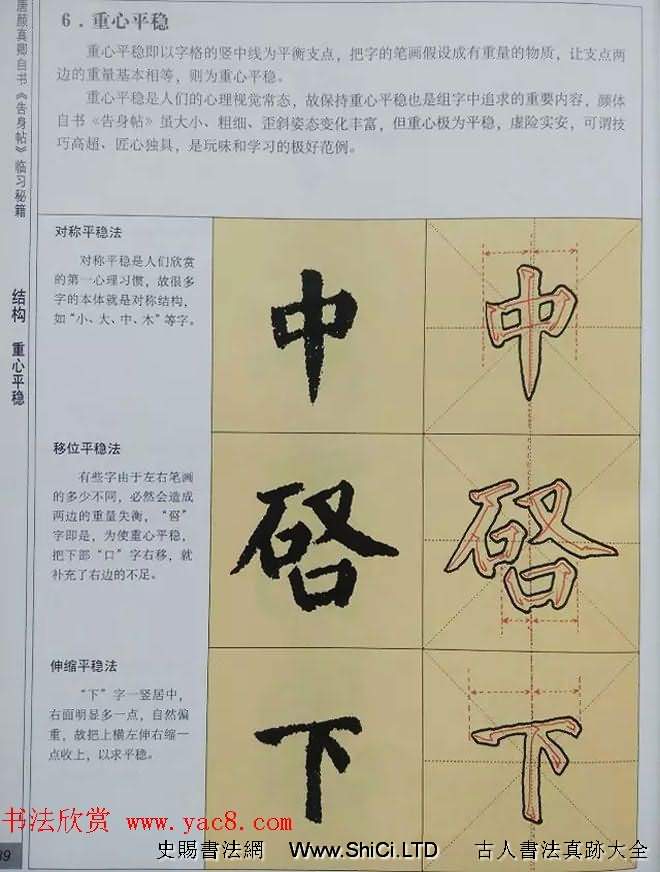 唐颜真卿自书《告身帖》临习秘籍
结构 重心平稳
6．重心平稳
重心平稳即以字格的竖中线为平衡支点，把字的笔画假设成有重量的物质，让支点两
边的重量基本相等，则为重心平稳。
重心平稳是人们的心理视觉常态，故保持重心平稳也是组字中追求的重要内容，颜体
自书《告身帖》虽大小、粗细、歪斜姿态变化丰富，但重心极为平稳，虚险实安，可谓技
巧高超、匠心独具，是玩味和学习的极好范例。
对称平稳法
对称平稳是人们欣赏
的第一心理习惯，故很多
字的本体就是对称结构，
如“小、大、中、木”等字。
中
中
移位平稳法
有些字由于左右笔画
的多少不同，必然会造成
两边的重量失衡，“
字即是，为使重心平稳，
把下部“口”字右移，就
补充了右边的不足。
伸缩平稳法
“下”字一竖居中，
右面明显多一点，自然偏
重，故把上横左伸右缩一
点收上，以求平稳。
下
下
书法欣赏 www.yac8.com
89
史賜書法網 Www.ShiCi.LTD 古人書法真跡大全